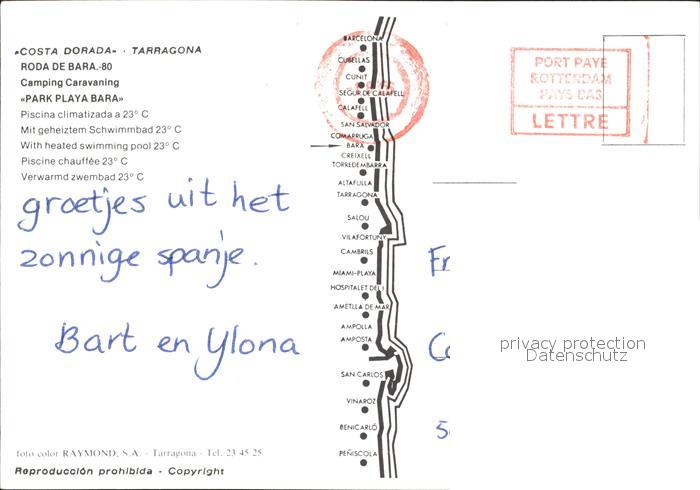 «COSTA DORADA» · TARRAGONA
RODA DE BARA.-80
Camping Caravaning
«PARK PLAYA BARA»
Piscina climatizada a 23° C
Mit geheiztem Schwimmbad 23° C
With heated swimming pool 23° C
Piscine chauffée 23° C
Verwarmd zwembad 23° C
groetjes uit het
zonnige spanje.
Bart en Ylona
foto color RAYMOND, S.A. - Tarragona - Tel. 23 45 25
Reproducción prohibida - Copyright
BARCELONA
CUBELLAS
CUNIT
SEGUR DE CALAFELL
CALAFELL
SAN SALVADOR
COMARRUGA
BARA
CREIXELL
TORREDEMBARRA
ALTAFULLA
TARRAGONA
SALOU
VILAFORTUNY
CAMBRILS
MIAMI-PLAYA
HOSPITALET DEL I.
AMETLLA DE MAR
AMPOLLA
AMPOSTA
SAN CARLOS
VINAROZ
BENICARLÓ
PEÑISCOLA
PORT PAYE
ROTTERDAM
PAYS BAS
LETTRE
Fr
Co
5
privacy protection
Datenschutz